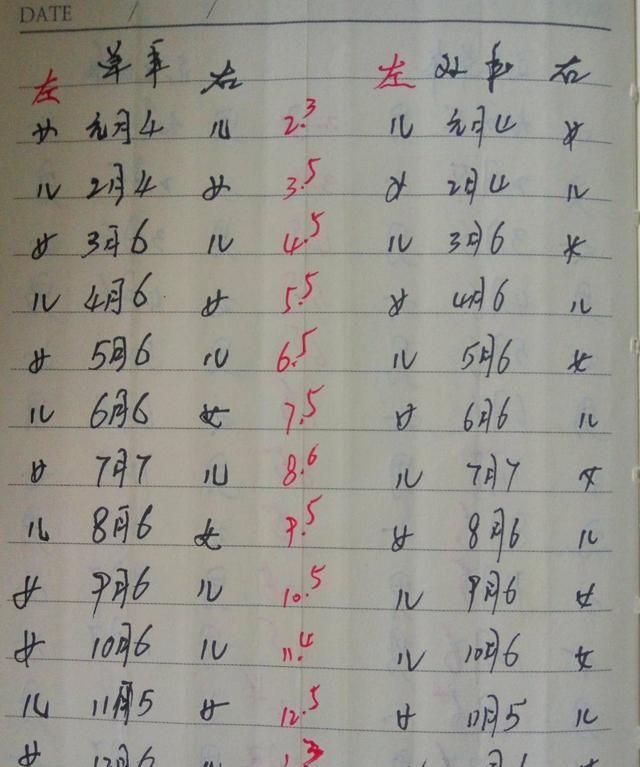 DATE / /
左 单年 右 左 双年 右
女 元月4 儿 2.3 儿 元月4 女
儿 2月4 女 3.5 女 2月4 儿
女 3月6 儿 4.5 儿 3月6 女
儿 4月6 女 5.5 女 4月6 儿
女 5月6 儿 6.5 儿 5月6 女
儿 6月6 女 7.5 女 6月6 儿
女 7月7 儿 8.6 儿 7月7 女
儿 8月6 女 9.5 女 8月6 儿
女 9月6 儿 10.5 儿 9月6 女
女 10月6 儿 11.4 儿 10月6 女
儿 11月5 女 12.5 女 11月5 儿
女 12月6